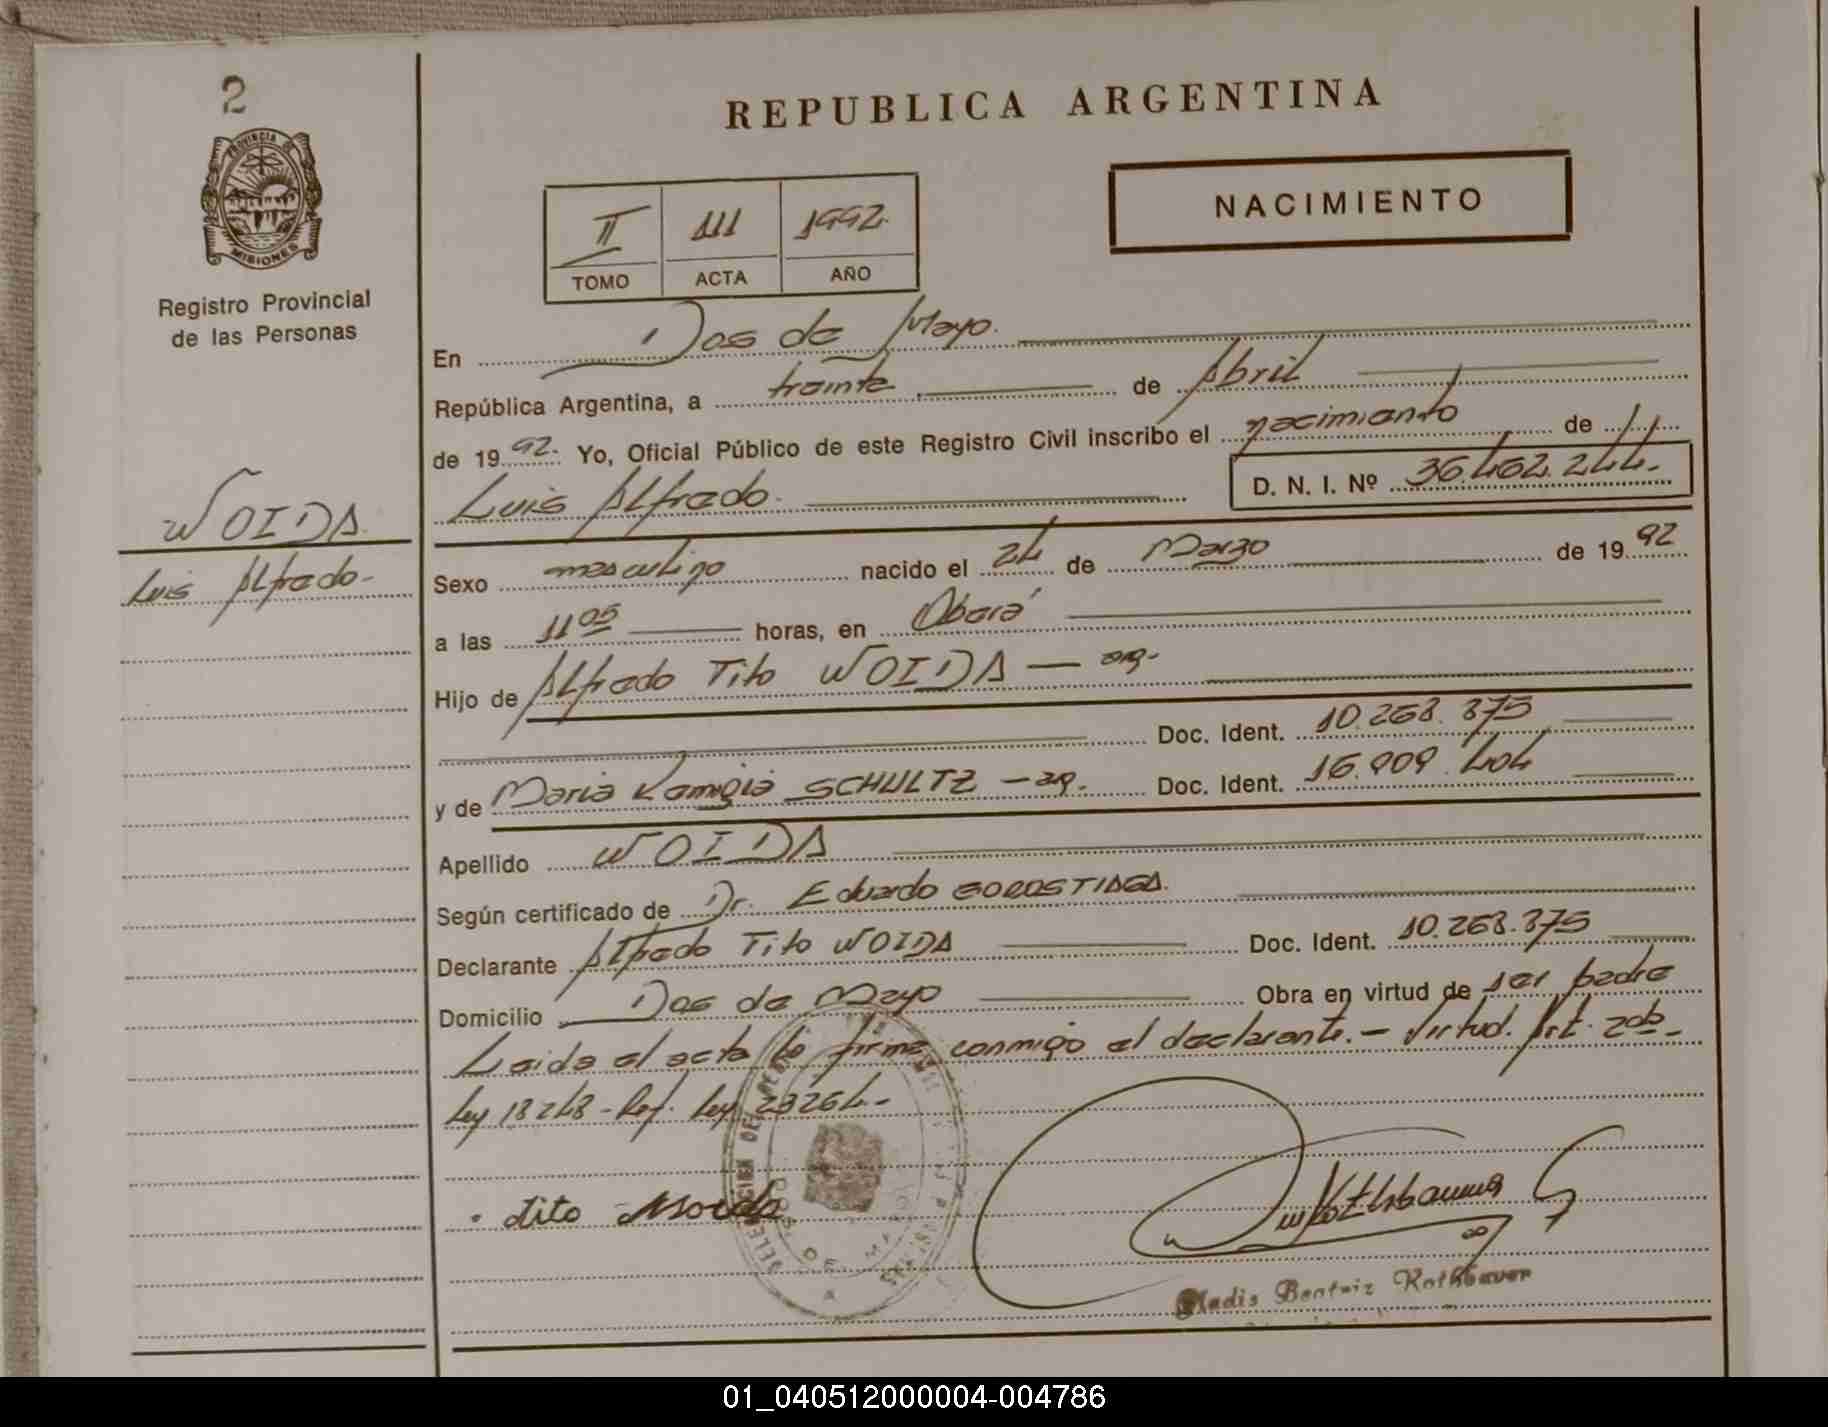 2
PROVINCIA DE
MISIONES
Registro Provincial
de las Personas
WOIDA
Luis Alfredo.-
REPUBLICA ARGENTINA
NACIMIENTO
II 111 1992.
TOMO ACTA AÑO
En Dos de Mayo.
República Argentina, a treinta de Abril
de 1992. Yo, Oficial Público de este Registro Civil inscribo el nacimiento de
Luis Alfredo. D. N. I. Nº 36.462.244.-
Sexo masculino nacido el 24 de Marzo de 1992
a las 11 05 horas, en Oberá
Hijo de Alfredo Tito WOIDA — arg.-
Doc. Ident. 10.268.875
y de Maria Remigia SCHULTZ — arg. Doc. Ident. 16.909.404
Apellido WOIDA
Según certificado de Dr. Eduardo GOROSTIAGA.
Declarante Alfredo Tito WOIDA Doc. Ident. 10.268.875
Domicilio Dos de Mayo Obra en virtud de ser padre
Leida el acta la firma conmigo el declarante.- Virtud. Art. 2do.-
Ley 18248- Ref. Ley 23264.-
DOS DE MAYO
Tito Woida
Rothbauer
Gladis Beatriz Rothbauer
01_040512000004-004786